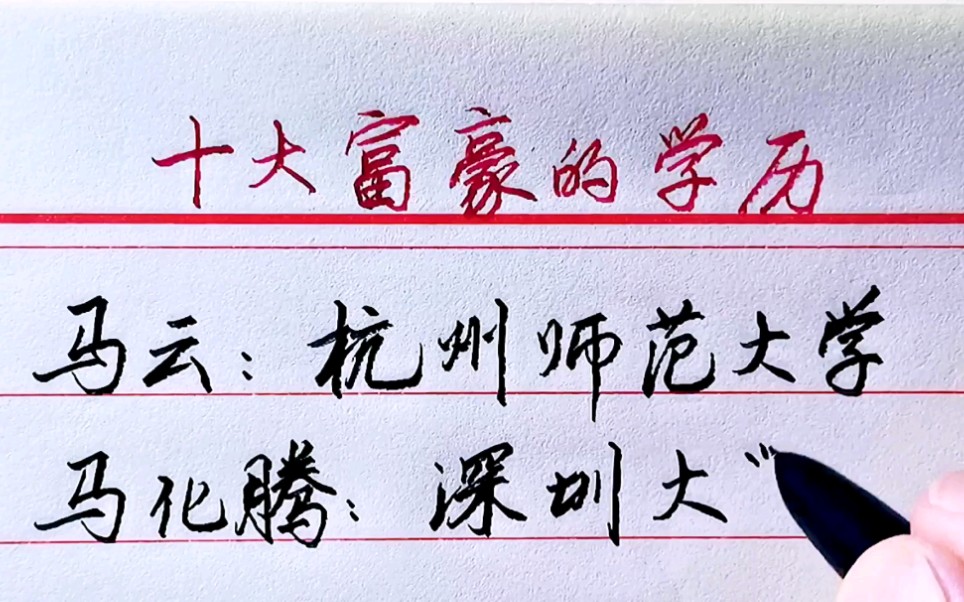 十大富豪的学历
马云：杭州师范大学
马化腾：深圳大